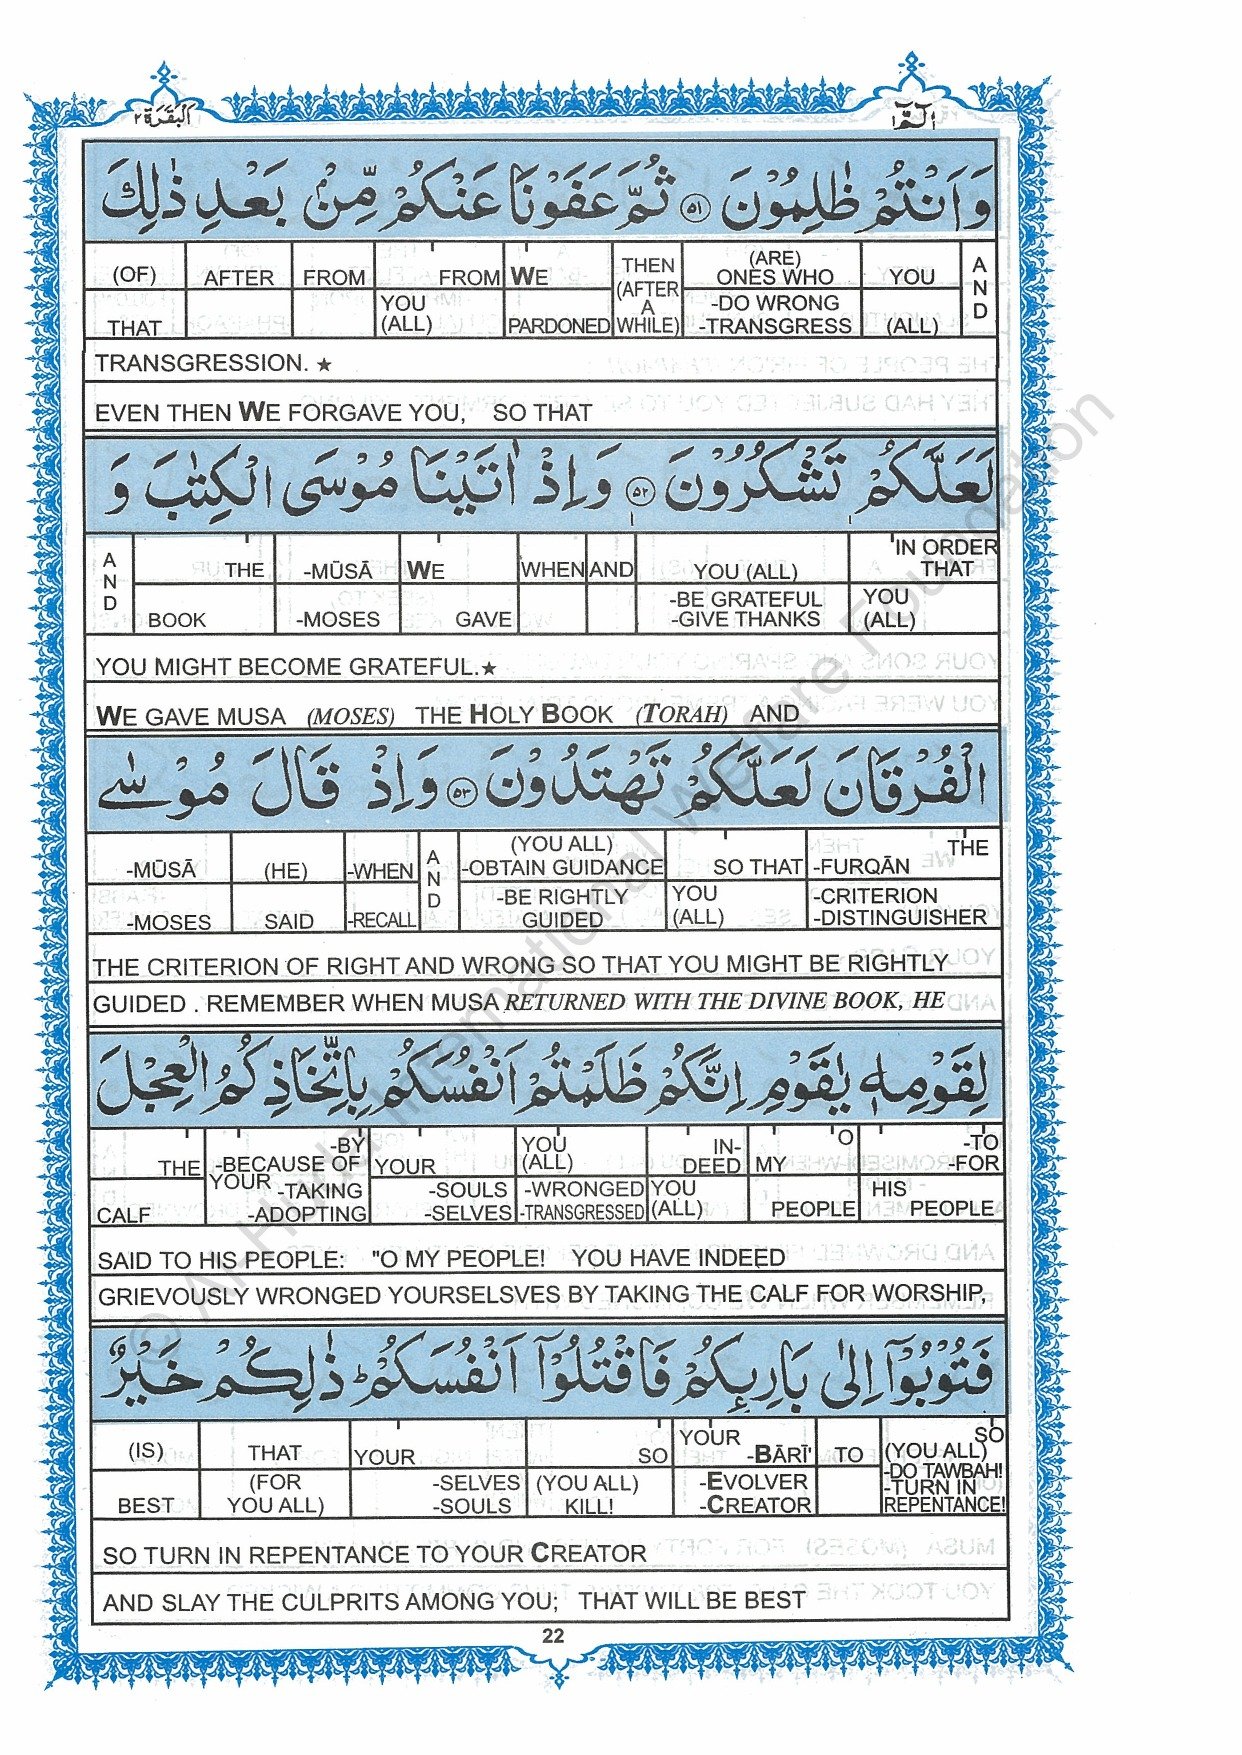 الٓمّٓ ١
البقرة ٢
وَاَنْتُمْ ظٰلِمُوْنَ ۝٥١ ثُمَّ عَفَوْنَا عَنْكُمْ مِّنْۢ بَعْدِ ذٰلِكَ
(OF) AFTER FROM FROM WE THEN (AFTER A WHILE) (ARE) ONES WHO YOU AND
THAT YOU (ALL) PARDONED -DO WRONG -TRANSGRESS (ALL)
TRANSGRESSION. ★
EVEN THEN WE FORGAVE YOU, SO THAT
لَعَلَّكُمْ تَشْكُرُوْنَ ۝٥٢ وَاِذْ اٰتَيْنَا مُوْسَى الْكِتٰبَ وَ
AND THE -MŪSĀ WE WHEN AND YOU (ALL) IN ORDER THAT
BOOK -MOSES GAVE -BE GRATEFUL -GIVE THANKS YOU (ALL)
YOU MIGHT BECOME GRATEFUL.★
WE GAVE MUSA (MOSES) THE HOLY BOOK (TORAH) AND
الْفُرْقَانَ لَعَلَّكُمْ تَهْتَدُوْنَ ۝٥٣ وَاِذْ قَالَ مُوْسٰى
-MŪSĀ (HE) -WHEN AND (YOU ALL) -OBTAIN GUIDANCE SO THAT THE -FURQĀN
-MOSES SAID -RECALL -BE RIGHTLY GUIDED YOU (ALL) -CRITERION -DISTINGUISHER
THE CRITERION OF RIGHT AND WRONG SO THAT YOU MIGHT BE RIGHTLY
GUIDED . REMEMBER WHEN MUSA RETURNED WITH THE DIVINE BOOK, HE
لِقَوْمِهٖ يٰقَوْمِ اِنَّكُمْ ظَلَمْتُمْ اَنْفُسَكُمْ بِاتِّخَاذِكُمُ الْعِجْلَ
THE -BY -BECAUSE OF YOUR YOU (ALL) IN-DEED O MY -TO -FOR
CALF YOUR -TAKING -ADOPTING -SOULS -SELVES -WRONGED -TRANSGRESSED YOU (ALL) PEOPLE HIS PEOPLE
SAID TO HIS PEOPLE: "O MY PEOPLE! YOU HAVE INDEED
GRIEVOUSLY WRONGED YOURSELSVES BY TAKING THE CALF FOR WORSHIP,
فَتُوْبُوْٓا اِلٰى بَارِىِٕكُمْ فَاقْتُلُوْٓا اَنْفُسَكُمْ ؕ ذٰلِكُمْ خَيْرٌ
(IS) THAT YOUR SO YOUR -BĀRĪ' TO SO (YOU ALL) -DO TAWBAH! -TURN IN REPENTANCE!
BEST (FOR YOU ALL) -SELVES -SOULS (YOU ALL) KILL! -EVOLVER -CREATOR
SO TURN IN REPENTANCE TO YOUR CREATOR
AND SLAY THE CULPRITS AMONG YOU; THAT WILL BE BEST
22
© Al-Huda International Welfare Foundation